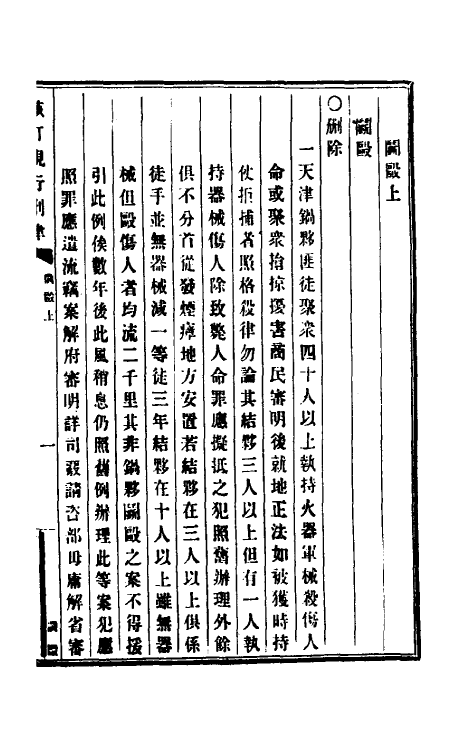 鬭毆上
鬭毆
○刪除
一天津鍋夥匪徒聚衆四十人以上執持火器軍械殺傷人
命或聚衆搶掠擾害商民審明後就地正法如被獲時持
仗拒捕者照格殺律勿論其結夥三人以上但有一人執
持器械傷人除致斃人命罪應擬抵之犯照舊辦理外餘
俱不分首從發煙瘴地方安置若結夥在三人以上俱係
徒手並無器械減一等徒三年結夥在十人以上雖無器
械但毆傷人者均流二千里其非鍋夥鬭毆之案不得援
引此例俟數年後此風稍息仍照舊例辦理此等案犯應
照罪應遣流竊案解府審明詳司覈請咨部毋庸解省審
訂現行刑律
鬭毆上
一